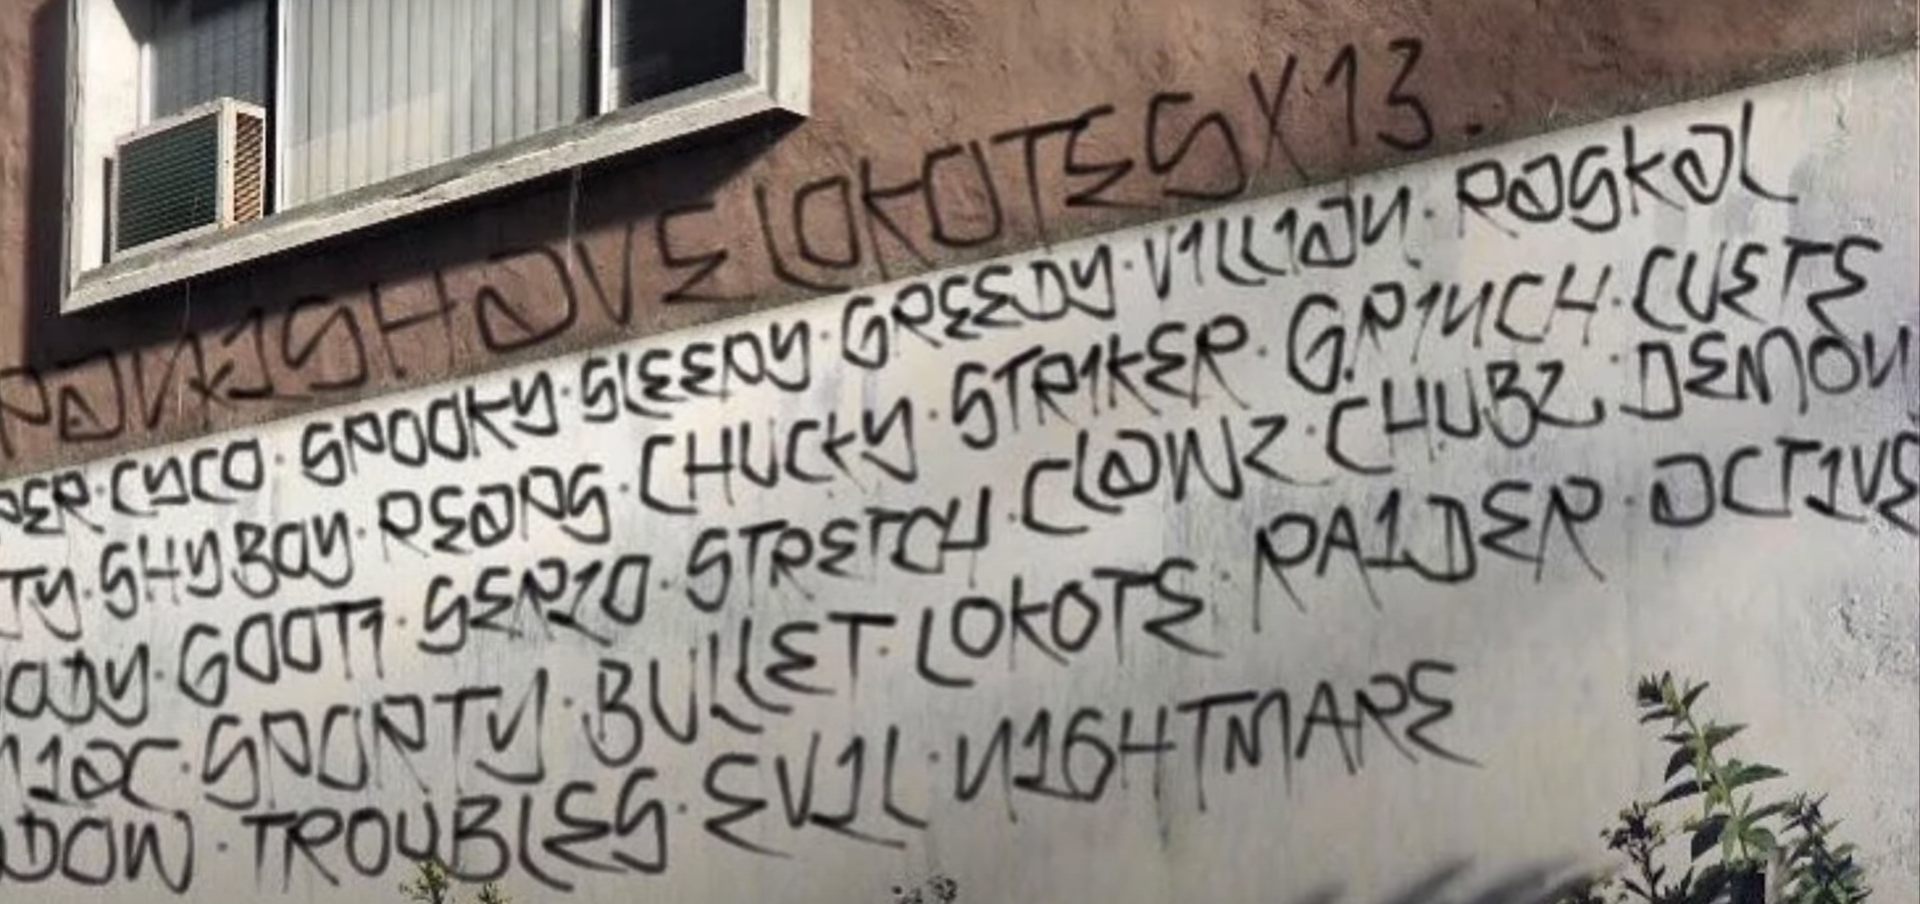 SPANISH AVE LOKOTES X13.
PER · CYCO · SPOOKY · SLEEPY · GREEDY · V1LL1AN · RASKAL
TY · SHYBOY · REAPS · CHUCKY · STR1KER · GR1NCH · CUETE
OADY · GOOT1 · SERIO · STRETCH · CLOWZ · CHUBZ · DEMON
N1AC · SPORTY · BULLET · LOKOTE · RA1DER · ACT1VE
ADOW · TROUBLES · EV1L · N1GHTMARE